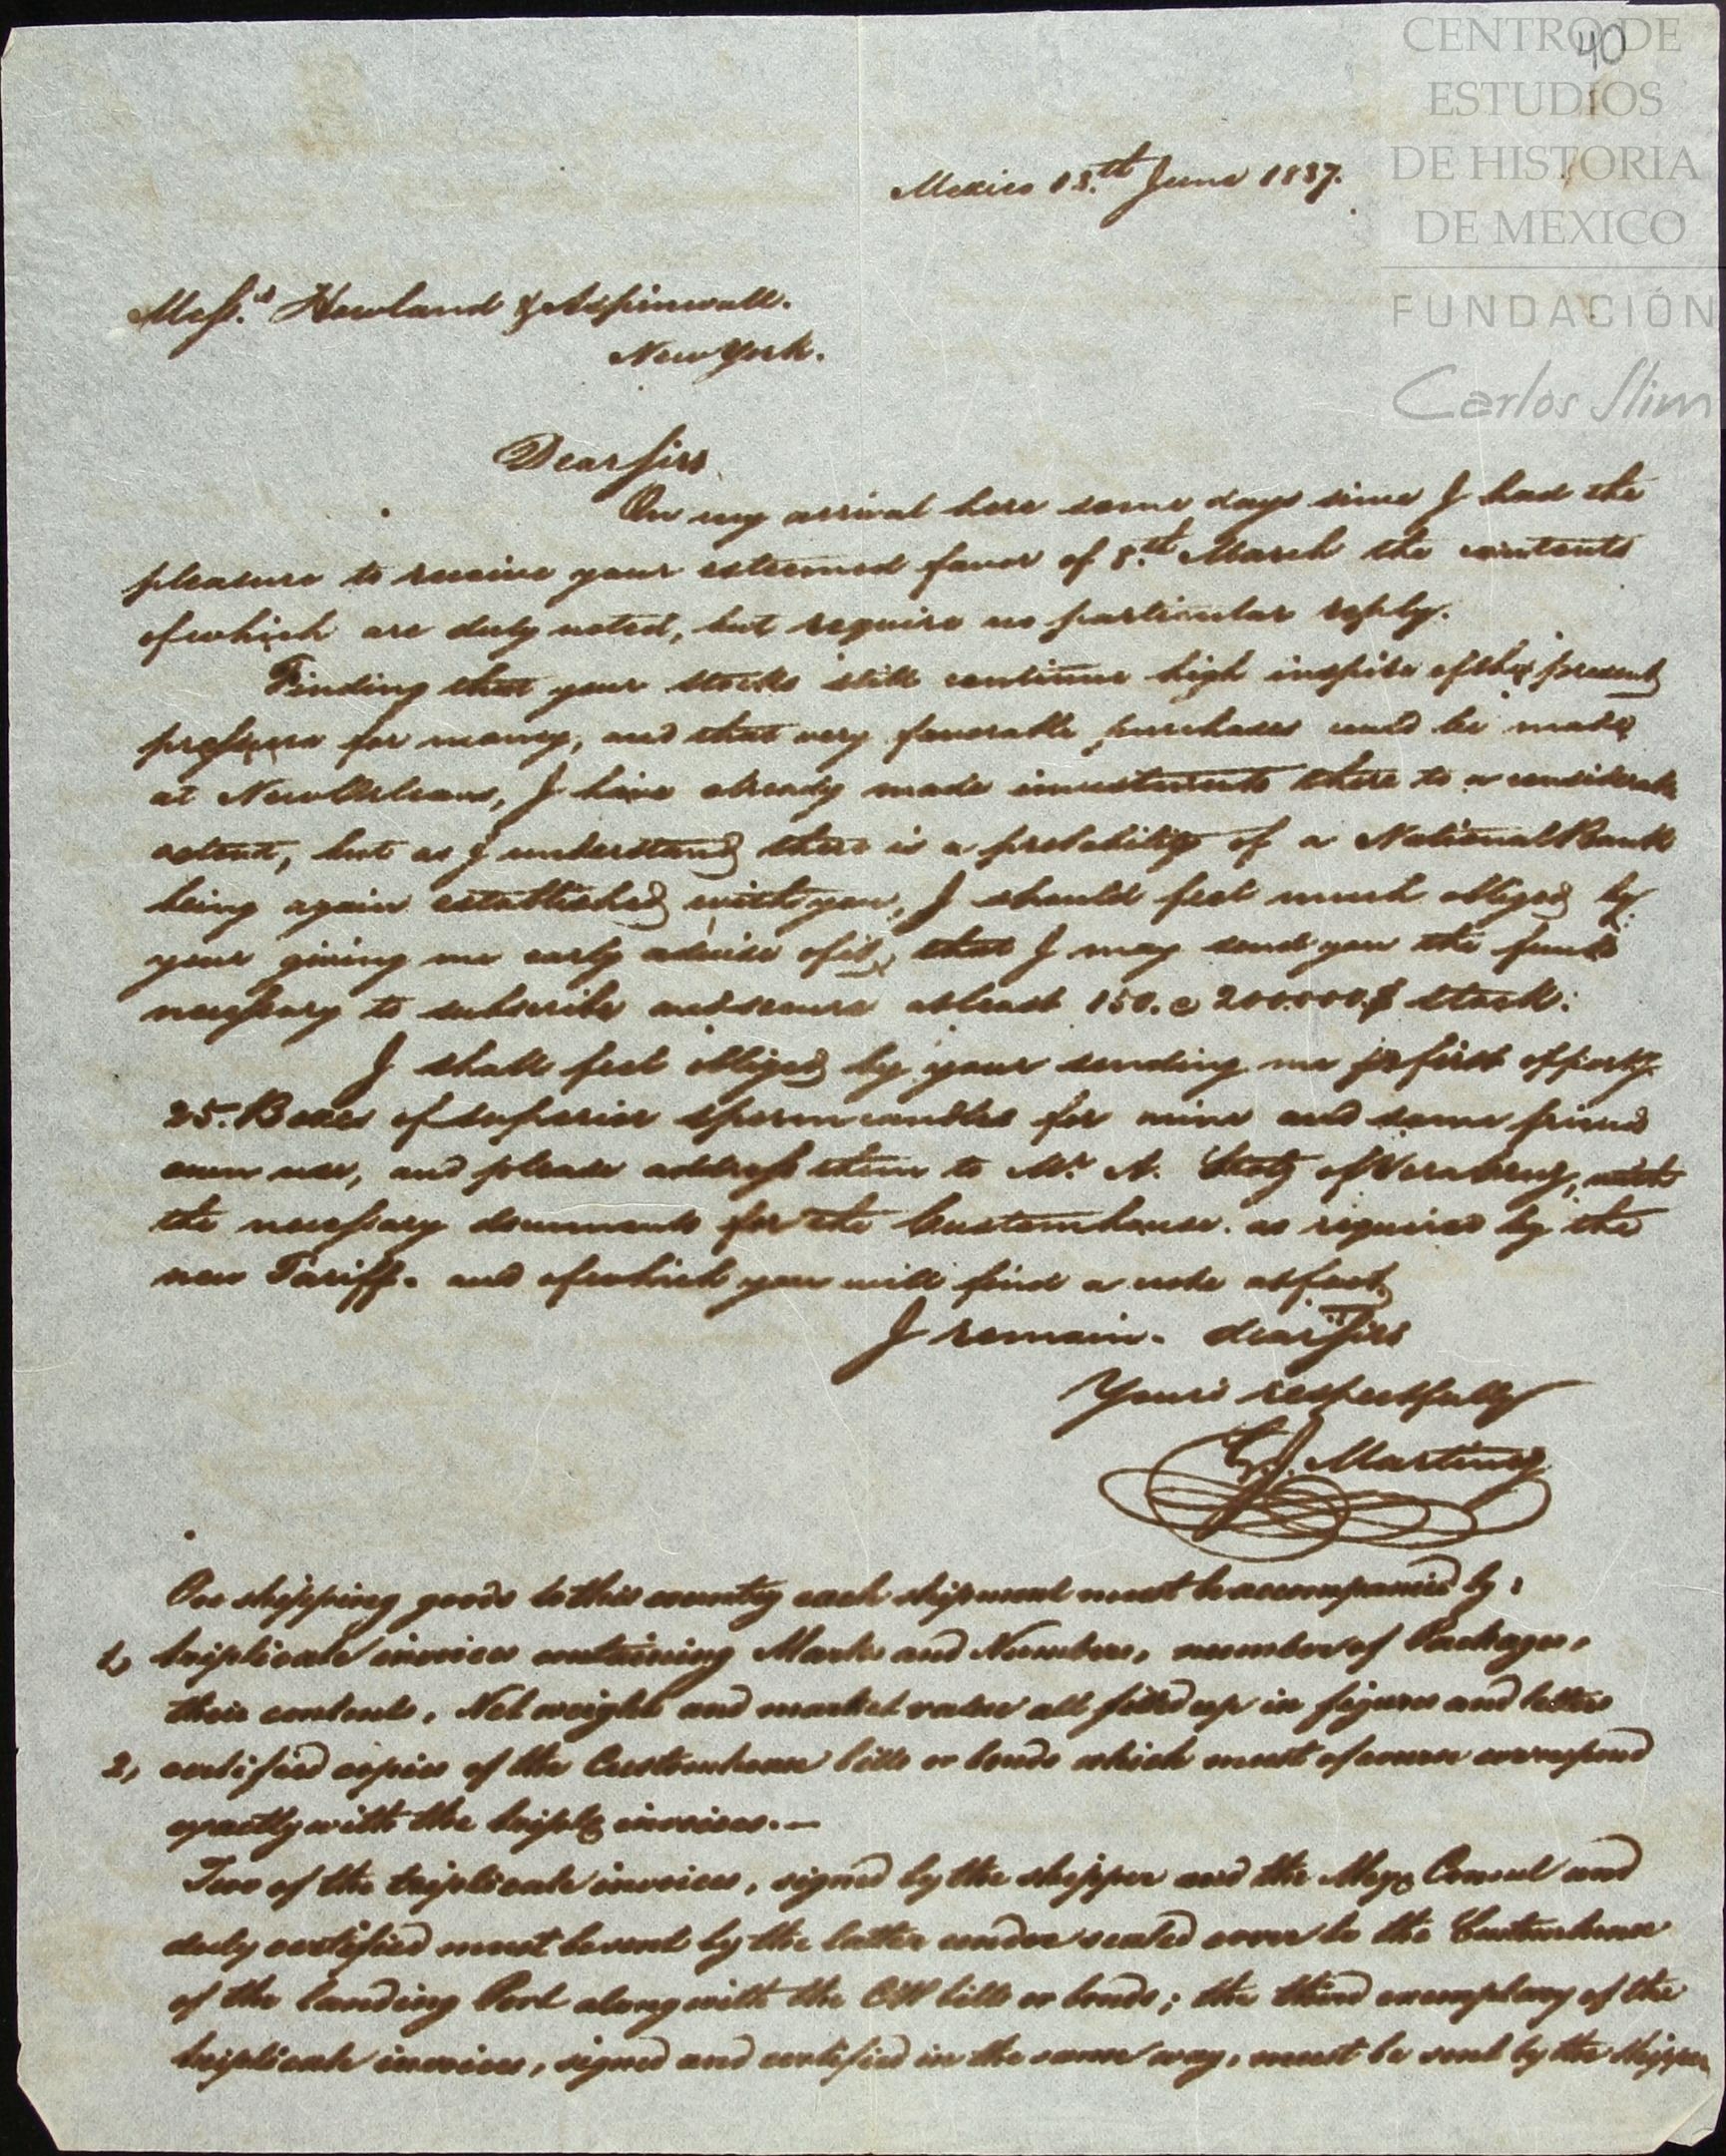 CENTRO DE
ESTUDIOS
DE HISTORIA
DE MEXICO
FUNDACIÓN
Carlos Slim
40
Mexico 13.th June 1837.
Mess.rs Howland & Aspinwall.
New York.
Dear Sirs
On my arrival here some days since I had the
pleasure to receive your esteemed favor of 8.th March the contents
of which are duly noted, but require no particular reply.
Finding that your stocks still continue high inspite of the present
pressure for money, and that very favorable purchases could be made
at New Orleans, I have already made investments there to a considerable
extent, but as I understand there is a probability of a National Bank
being again established with you, I should feel much obliged by
your giving me early advise of it, that I may send you the funds
necessary to subscribe and secure at least 150. @ 200.000.$ stock.
I shall feel obliged by your sending me pr first opporty.
25. Boxes of superior sperm candles for mine and some friends
own use, and please address them to Mr. A. of Vera Cruz, with
the necessary documents for the Customhouse. as required by the
new Tariff. and of which you will find a note at foot.
I remain. dear Sirs
Yours respectfully
Martinez
On shipping goods to this country each shipment must be accompanied by:
1, triplicate invoices containing Marks and Numbers, number of Packages,
their contents, Net weight and market value all filled up in figures and letters
2, certified copies of the Customhouse bills or bonds which must of course correspond
exactly with the triple invoices.—
Two of the triplicate invoices, signed by the shipper and the Mexn Consul and
duly certified must be sent by the latter under sealed cover to the Customhouse
of the landing Port along with the CH bills or bonds; the third exemplary of the
triplicate invoices, signed and certified in the same way, must be sent by the shipper